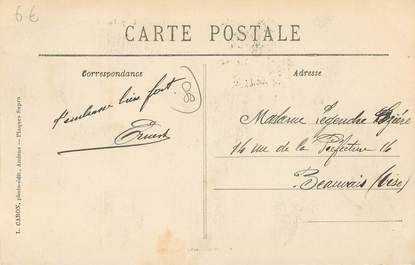 6€
CARTE POSTALE
Correspondance
Adresse
80
t'embrasse bien fort.
Ernest
Madame Legendre
14 rue de la Préfecture 14
Beauvais (Oise)
L. CARON, photo-édit., Amiens — Plaques Supra